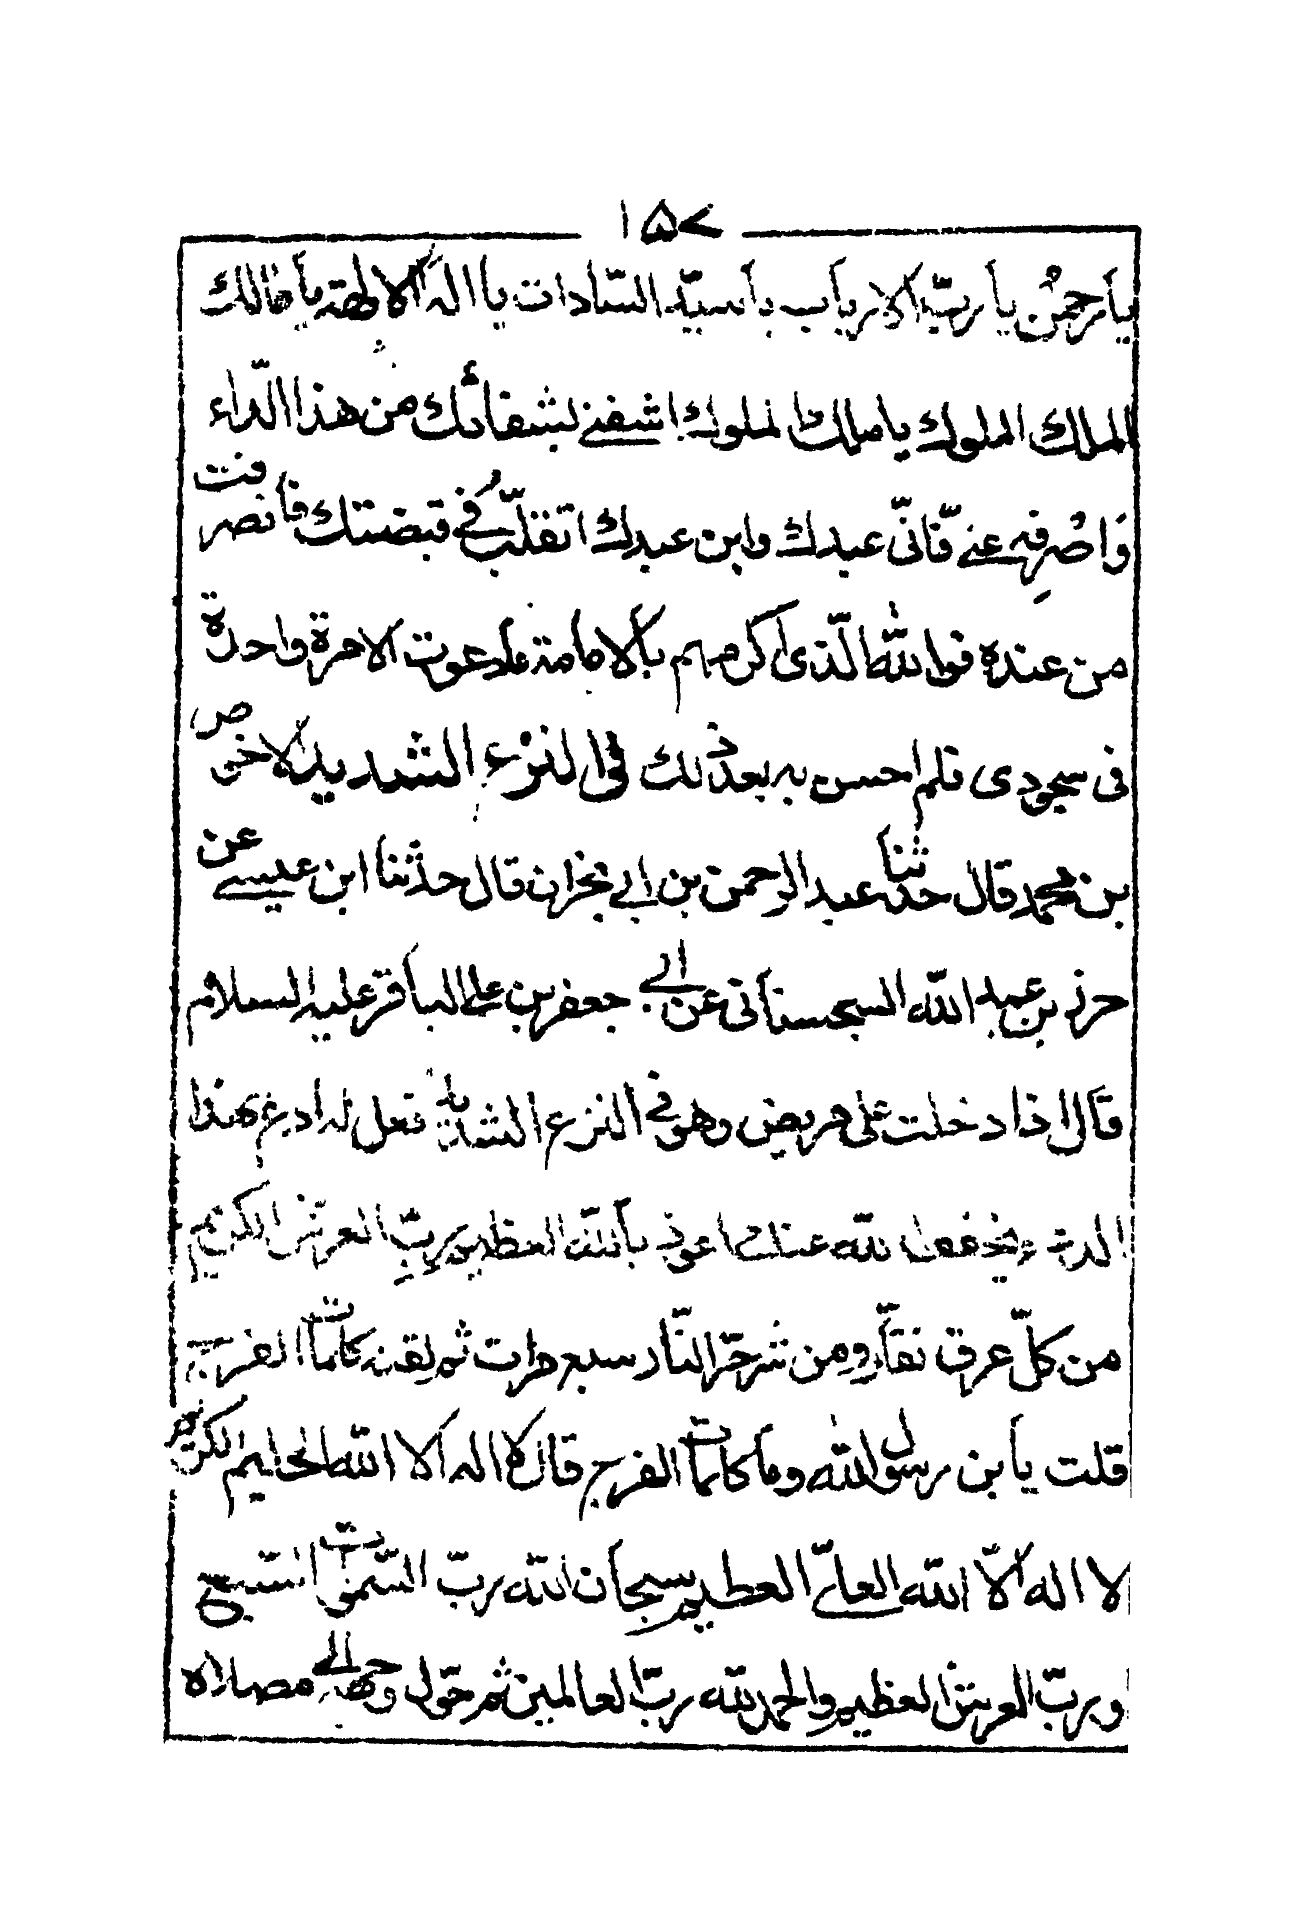 ١٥٧
يا رحمن يا ربّ الارباب يا سيّد السّادات يا اله الالهة يا مالك
الملك الملوك يا مالك الملوك اشفني بشفائك من هذا الدّاء
وَاصْرِفه عنى فَانّى عبدك وابن عبدك اتقلّب فُى قبضتك فانصرفت
من عنده فو الله الّذى اكرمهم بالامامة ما دعوت الا مرة واحدة
فى سجودى فلم احسن به بعد ذلك فى النزع الشديد الاخوص
بن محمد قال حدثنا عبد الرحمن بن ابي نجران قال حدثنا ابن عيسى عن
حرز بن عبد الله السجستانى عن ابى جعفر بن على الباقر عليه السلام
قال اذا دخلت على مريض وهو فى النزع الشديد فقل له ادع بهذا
الدعاء يخفف الله عنك اعوذ بالله العظيم ربّ العرش الكريم
من كلّ عرق نفّارٍ ومن شرحرّ النّار سبع مرات ثم لقنه كلمات الفرج
قلت يا بن رسول الله وما كلمات الفرج قال لا اله الا الله الحليم الكريم
لا اله الّا الله العلىّ العظيم سبحان الله ربّ السّموات السبع
و ربّ العرش العظيم والحمد لله ربّ العالمين ثم حوّل وجهه الى مصلاه